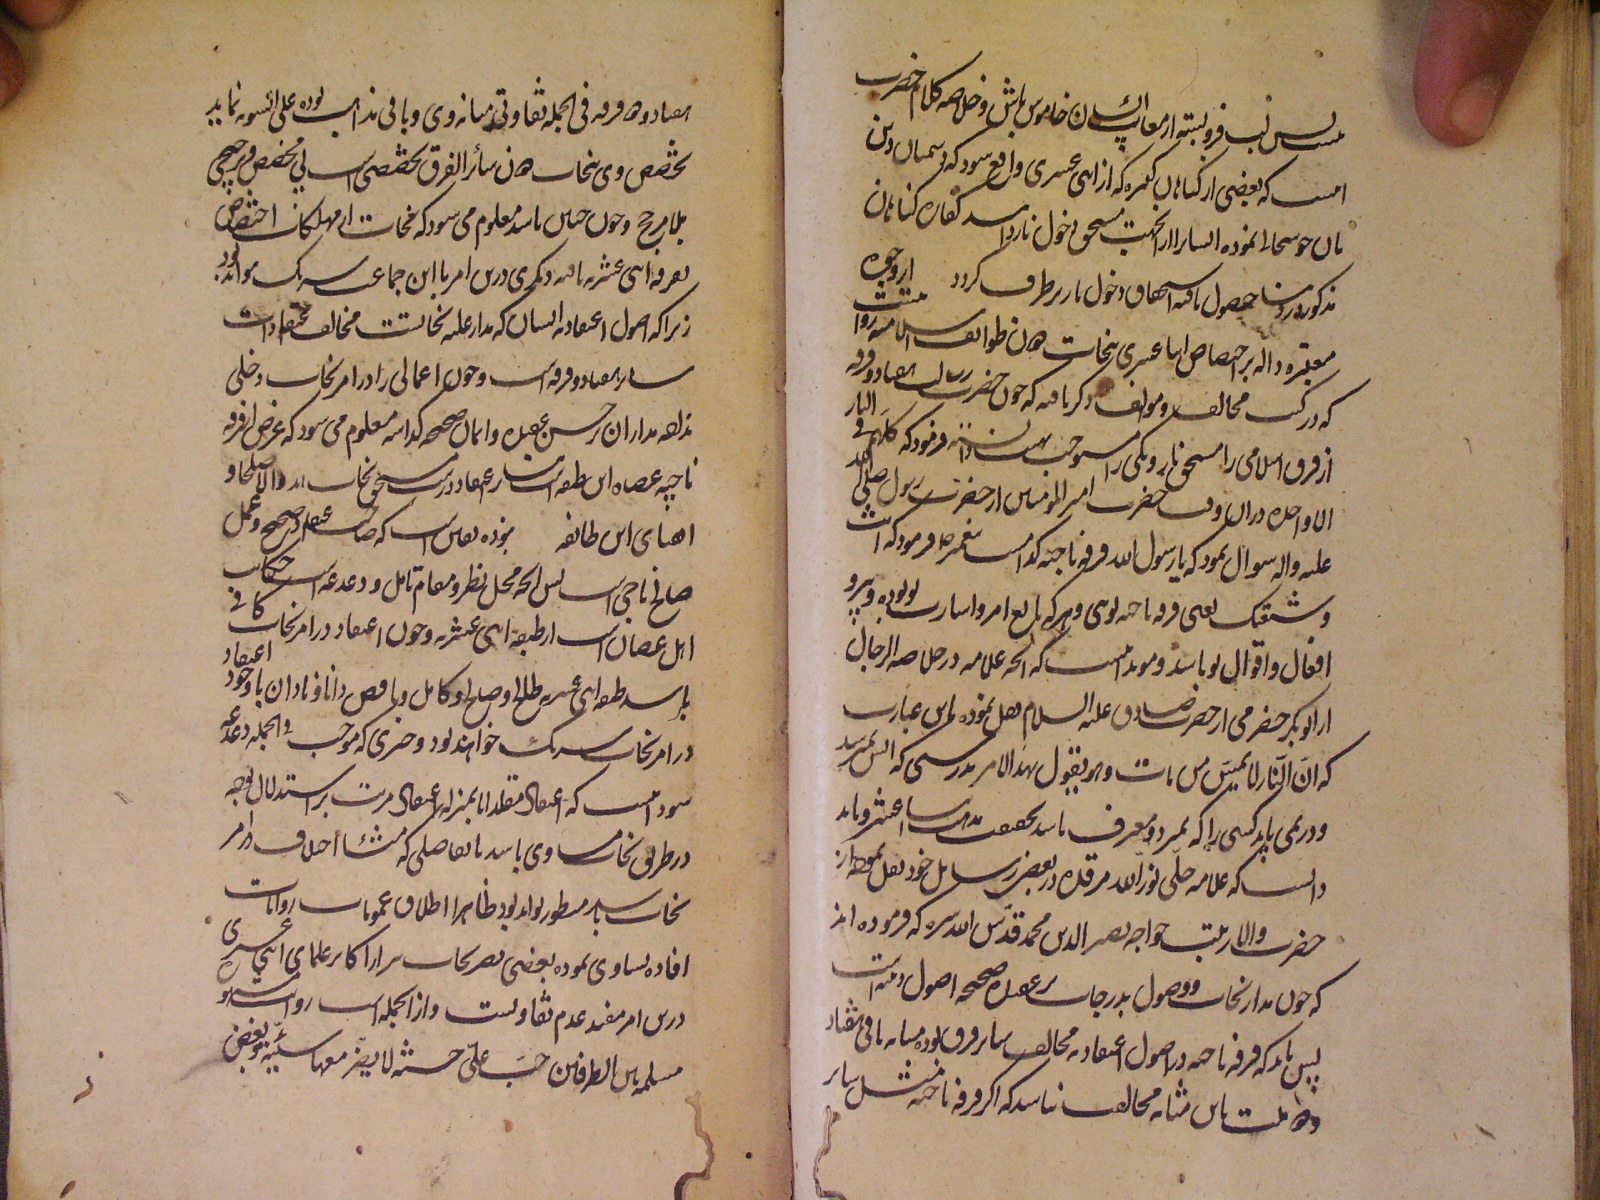 پس لب فروبسته از معایب ایشان خاموش باش و خلاصه کلام حضرت
است که بعضی از گناهان کبیره که از اثنی عشری واقع شود که
نموده مستحق دخول نار کفاره گناهان
مذکوره حصول یافته استحقاق دخول نار برطرف گردد از وجوه
معتبره داله بر اختصاص اثنا عشری بنجات من طوایف اسلامیه روایتست
که در کتب مخالف و مؤالف ذکر یافته که چون حضرت رسالت هفتاد و دو فرقه
از فرق اسلامی را مستحق نار و یکی را مستوجب بهشت دانسته فرمود که کلهم فی النار
الا واحده در آن وقت حضرت امیر المؤمنین از حضرت رسول صلی الله
علیه واله سوال نمود که یا رسول الله فرقه ناجیه کدامست پیغمبر فرمود که انت
و شیعتک یعنی فرقه ناجیه توئی و هر که تابع امر و اشارت تو بوده و پیرو
افعال و اقوال تو باشد و مؤید اینست که آنچه علامه در خلاصه الرجال
از ابوبکر حضرمی از حضرت صادق علیه السلام نقل نموده باین عبارت
که ان النار لا یمس من مات وهو یقول بهذا الامر بدرستی که آتش نمیرسد
و در نمی یابد کسی را که بمیرد و معترف باشد بحقیقت مذهب اثنا عشر و باید
دانست که علامه حلی نور الله مرقده در بعضی رسایل خود نقل نموده از
حضرت والا رتبت خواجه نصیر الدین محمد قدس الله سره که فرموده اند
که چون مدار نجات و وصول بدرجات بر عقیده صحیحه اصول دینیه است
پس باید که فرقه ناجیه در اصول اعتقادیه مخالف سایر فرق بوده میانه باقی هفتاد
و دو ملت باین مثابه مخالفت نباشد که اگر فرقه ناجیه مثل سایر
هفتاد و دو فرقه فی الجمله تفاوتی میانه وی و باقی مذاهب بوده علی السویه نماید
تخصیص وی بنجات من سائر الفرق تخصیصی است بی مخصص و ترجیحی
بلا مرجح و چون چنین باشد معلوم می شود که نجات از مهلکات اختصاص
بفرقه اثنی عشریه یافته دیگری درین امر با این جماعت شریک نتواند بود
زیرا که اصول اعتقادیه ایشان که مدار علیه نجاتست مخالف معتقدات
سایر هفتاد و دو فرقه است و چون اعمالی را در امر نجات دخلی
نداده مدار آن بر حسن عقیده و ایمان صحیح گذاشته معلوم می شود که غرض از فرقه
ناجیه عصاه این طبقه است اعتقاد درست مستحق نجات اند والا صلحا و
اتقیای این طائفه بوده یقین است که صاحب عقیده صحیح و عمل
صالح ناجی است پس آنچه محل نظر و مقام تامل و دغدغه است حکایت
اهل عصیان است از طبقه اثنی عشریه و چون اعتقاد در امر نجات کافی
باشد طبقه اثنی عشریه طالح و صالح و کامل و ناقص دانا و نادان با وجود اعتقاد
در امر نجات شریک خواهند بود و چیزی که موجب فی الجمله دغدغه
شود اینست که اعتقاد مقلد آیا بمنزله اعتقاد مرتب بر استدلال بوجه
در طریق نجات مساوی باشد یا تفاضلی که منشاء اختلاف در امر
نجات باشد منظور تواند بود ظاهرا اطلاق عمومات روایات
افاده تساوی نموده بعضی تصریحات اکابر علمای اثنی عشری
درین امر مفید عدم تفاوتست و از آنجمله است روایت
مسلمه بین الطرفین حب علی حسنة لا یضر معها سیئة و بغض